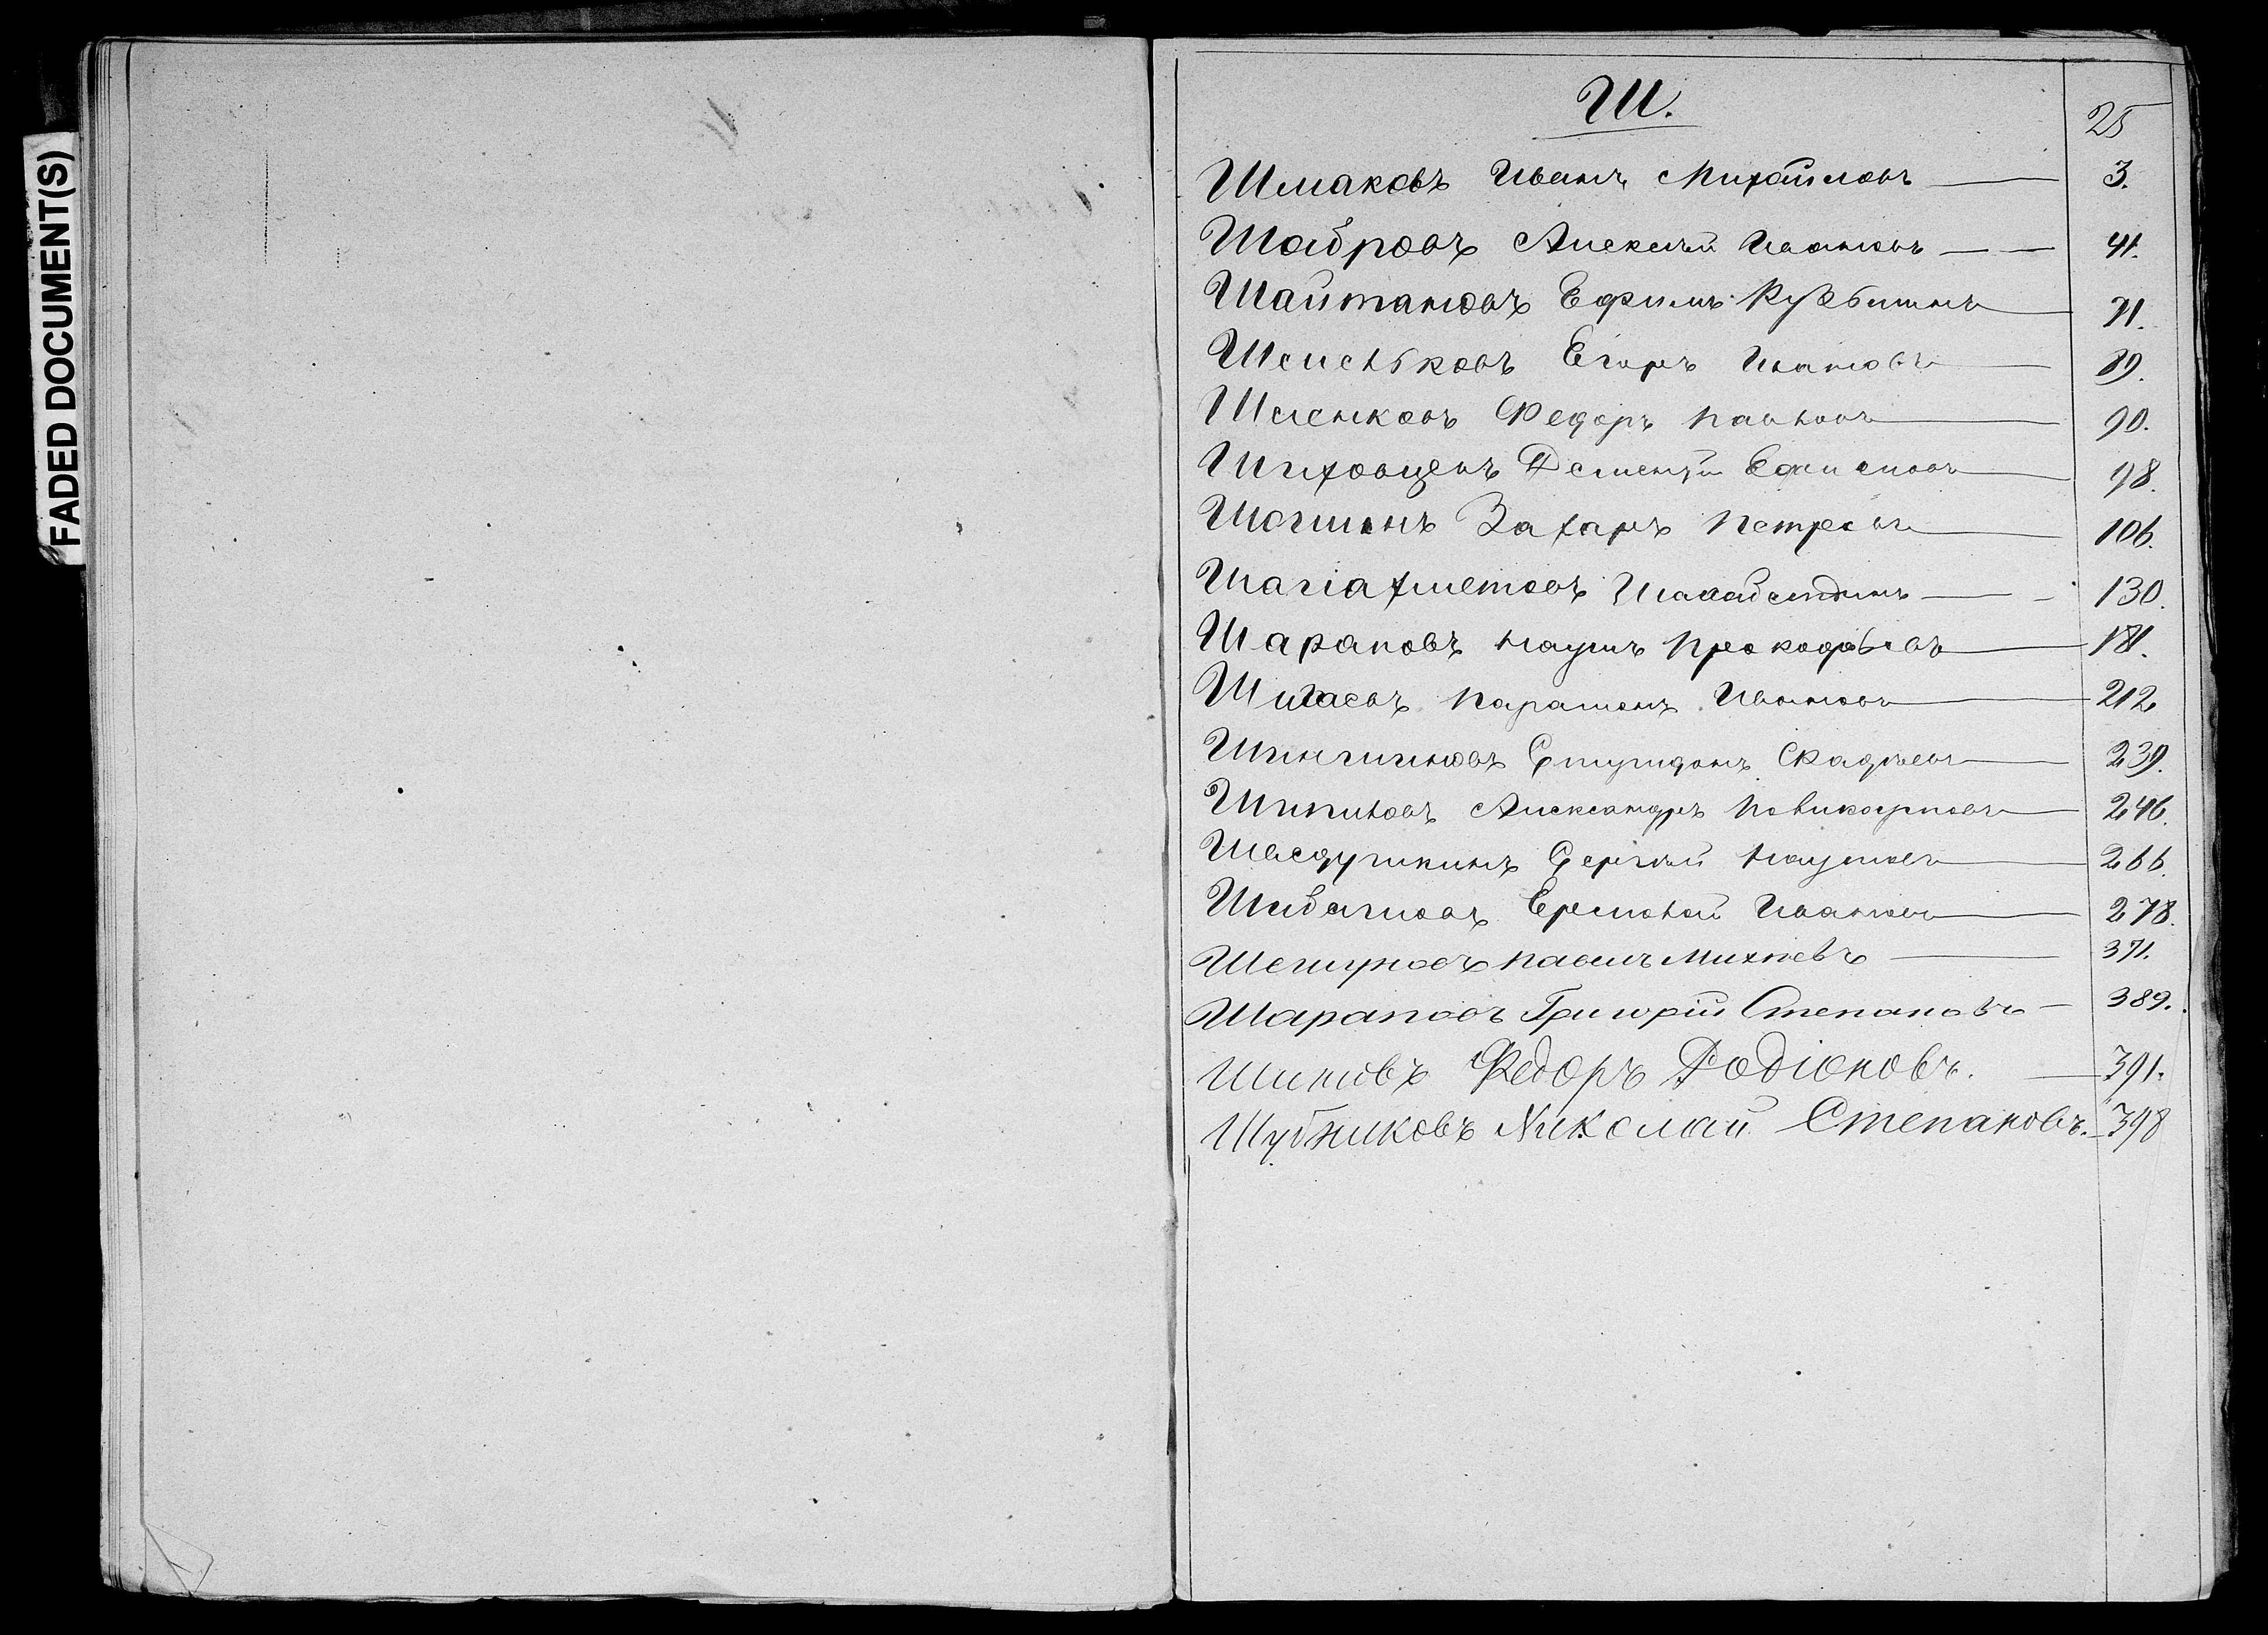 FADED DOCUMENT(S)
Ш.
25
Шмаковъ Иванъ Михайловъ 3.
Шабровъ Алексѣй Ивановъ 41.
Шайтановъ Ефимъ Кузьминъ 71.
Шеленьковъ Егоръ Ивановъ 89.
Шеленковъ Федоръ Павловъ 90.
Шиховцевъ Дементій Ефимовъ 98.
Шогшинъ Захаръ Петровъ 106.
Шагіахметовъ 130.
Шараповъ Наумъ Прокофьевъ 181.
Шигаевъ Парамонъ Ивановъ 212
Шингиновъ Спиридонъ 239.
Шипиловъ Александръ Поликарповъ 246.
Швецушкинъ Сергѣй Наумовъ 266.
Шибагиновъ Ермолай Ивановъ 278.
Шешуновъ Павелъ Михѣевъ 371.
Шараповъ Григорій Степановъ 389.
Шиповъ Федоръ Родіоновъ. 391.
Шубниковъ Николай Степановъ. 398